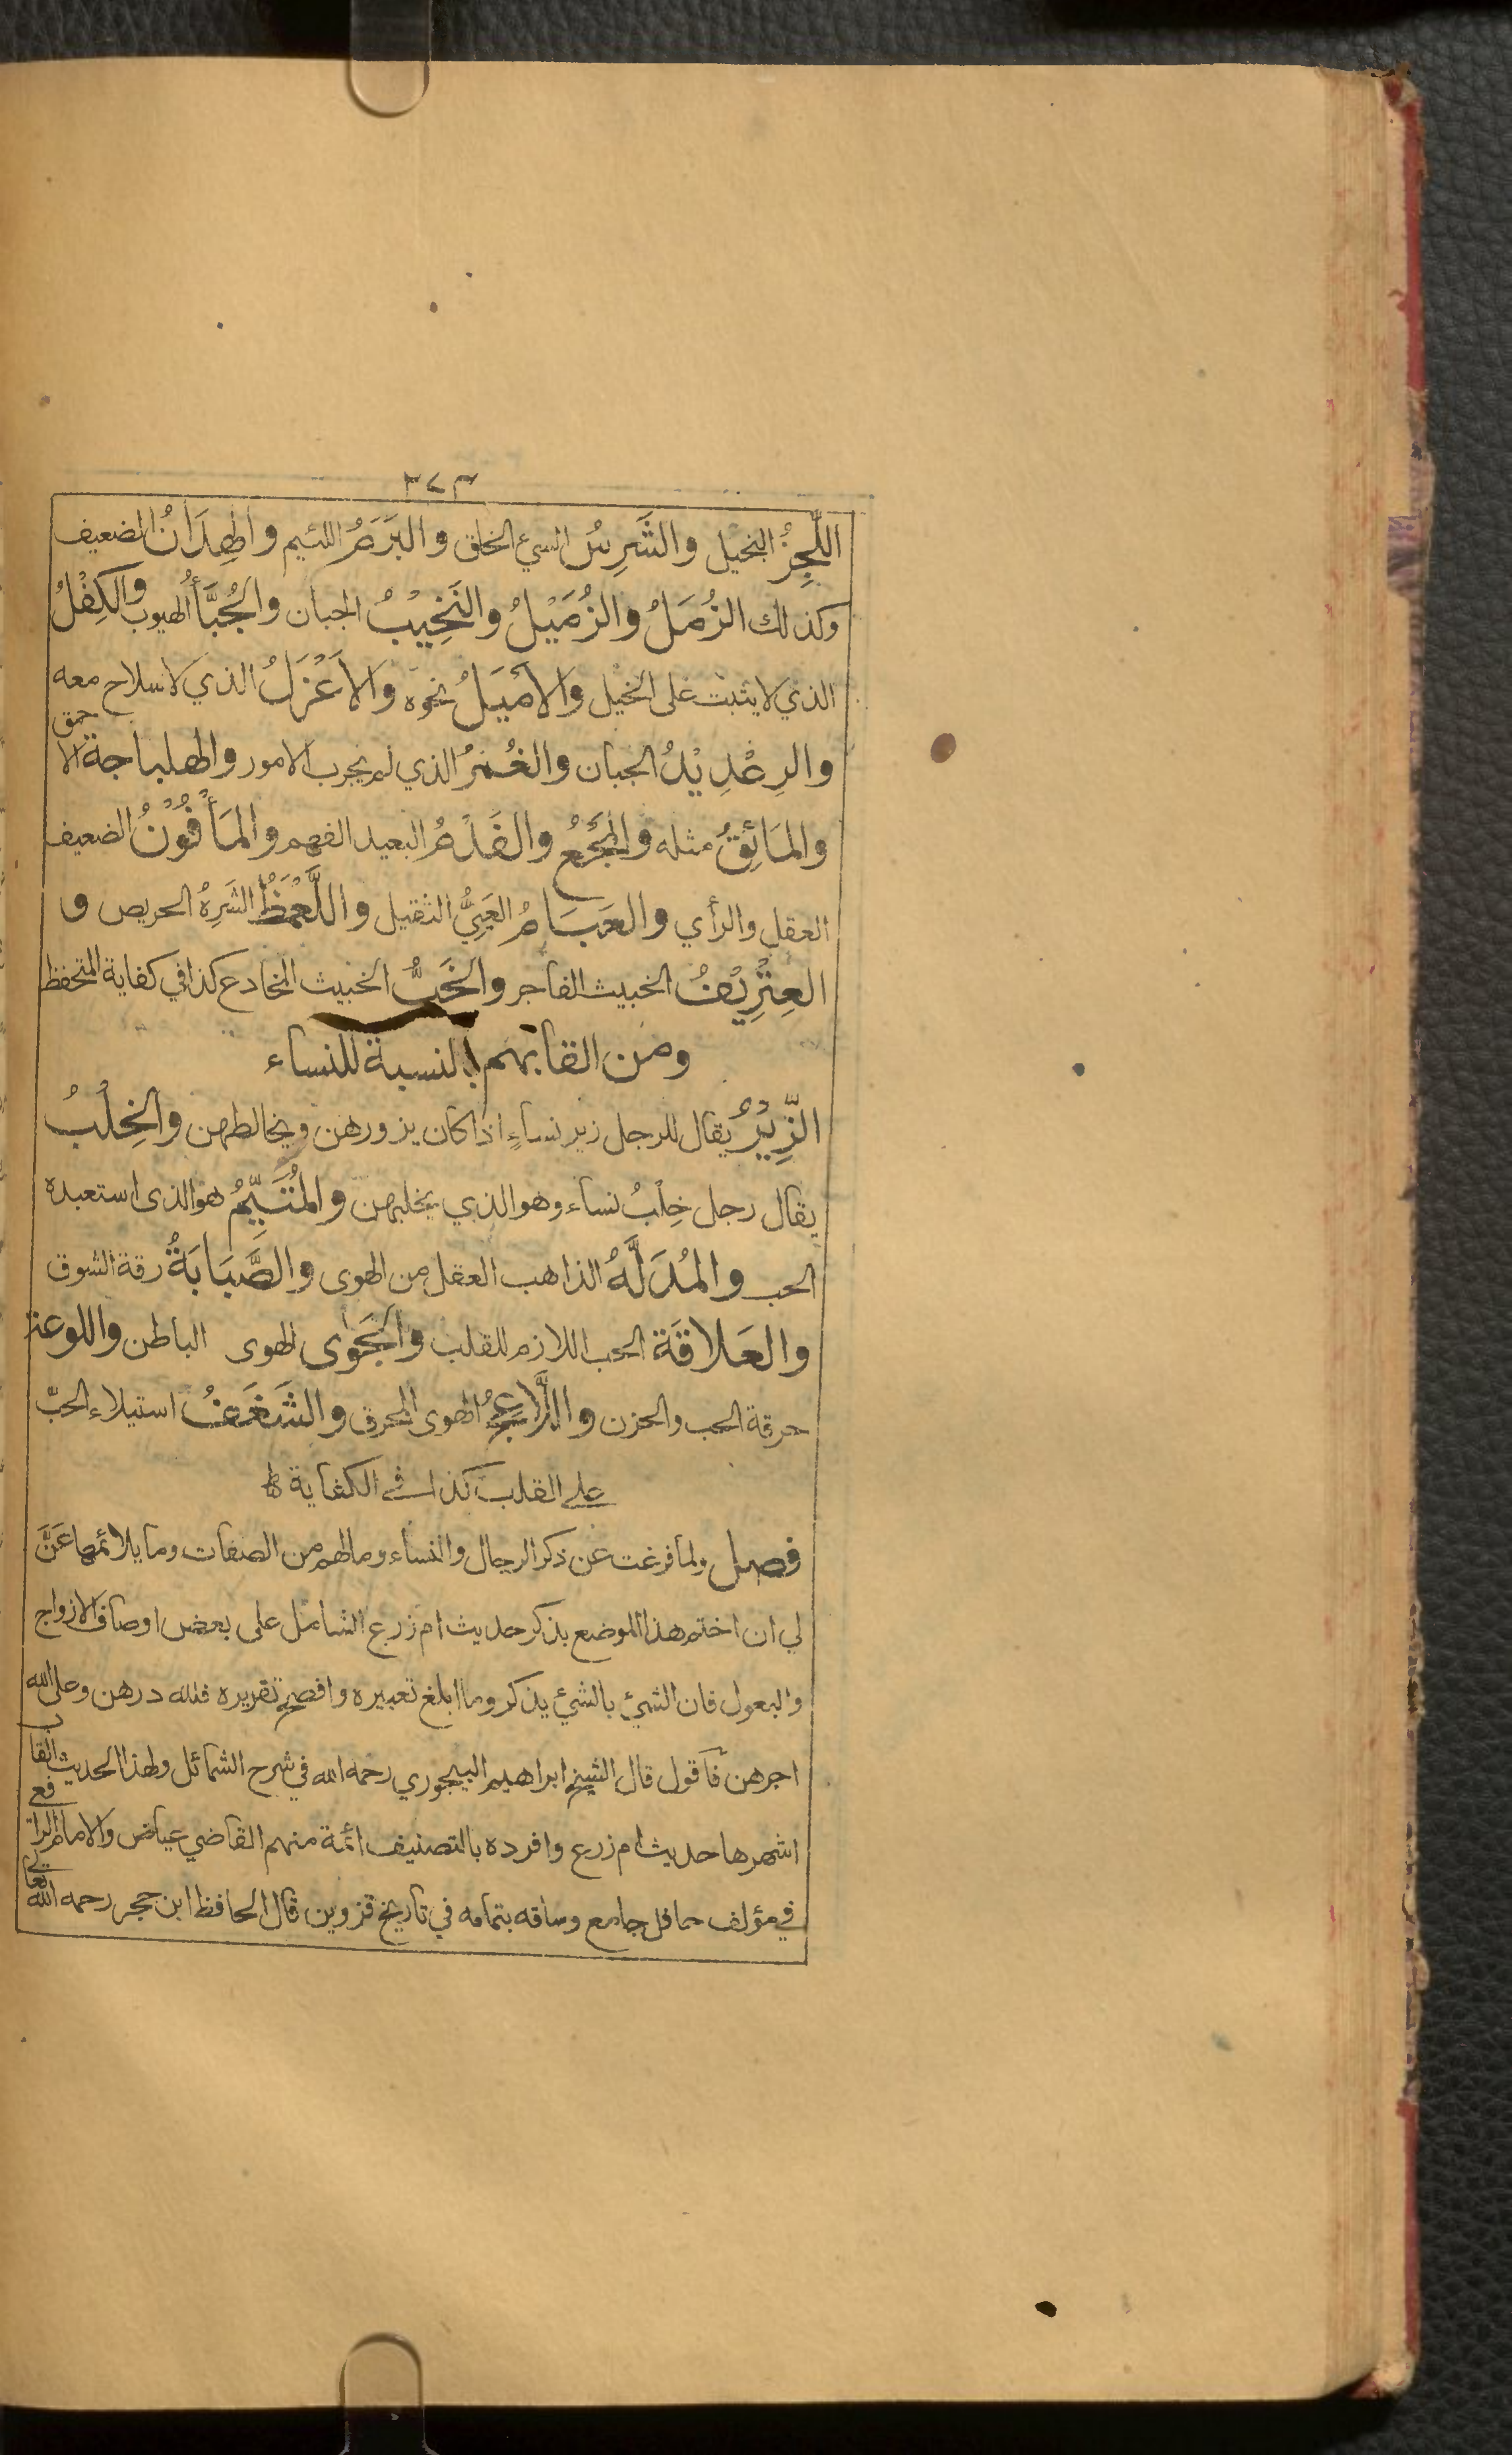 ٣٧٣
اللَّحِزُ البخيل والشَّرِسُ السيء الخلق والبَرَمُ اللئيم والهِدَانُ الضعيف
وكذلك الزُمَلُ والزُمَيْلُ والنَخِيْبُ الجبان والجُبَّأُ الهيوب والكِفْلُ
الذي لا يثبت على الخيل والأَمْيَلُ نحوه والأَعْزَلُ الذي لا سلاح معه
والرِعْدِيْدُ الجبان والغُمْرُ الذي لم يجرب الامور والهلباجة الاحمق
والمَائِقُ مثله والفَدْمُ البعيد الفهم والمَأْفُوْنُ الضعيف
العقل والرأي والعَبَامُ العَيِيُّ الثقيل واللَّعْمَظُ الشَرِهُ الحريص و
العِتْرِيْفُ الخبيث الفاجر والخَبُّ الخبيث المخادع كذا في كفاية المتحفظ
ومن القابهم بالنسبة للنساء
الزِّيْرُ يقال للرجل زير نساءٍ اذا كان يزورهن ويخالطهن والخِلْبُ
يقال رجل خِلْبُ نساء وهو الذي يخلبهن والمُتَيَّمُ هو الذى استعبده
الحب والمُدَلَّهُ الذاهب العقل من الهوى والصَّبَابَةُ رقة الشوق
والعَلاقَة الحب اللازم للقلب والجَوٰى الهوى الباطن واللوعة
حرقة الحب والحزن واللَّاعِجُ الهوى المحرق والشَغَفُ استيلاء الحبّ
على القلب كذا فى الكفاية
فصل ولما فرغت عن ذكر الرجال والنساء وما لهم من الصفات وما يلائمها عَنَّ
لي ان اختم هذا الموضع بذكر حديث ام زرع الشامل على بعض اوصاف الازواج
والبعول فان الشئ بالشئ يذكر وما ابلغ تعبيره وافصح تقريره فلله درهن وعلى الله
اجرهن فأقول قال الشيخ ابراهيم البيجوري رحمه الله في شرح الشمائل ولهذا الحديث القاب
اشهرها حديث ام زرع وافرده بالتصنيف ائمة منهم القاضي عياض والامام الرافعي
في مؤلف حافل جامع وساقه بتمامه في تاريخ قزوين قال الحافظ ابن حجر رحمه الله تعالى